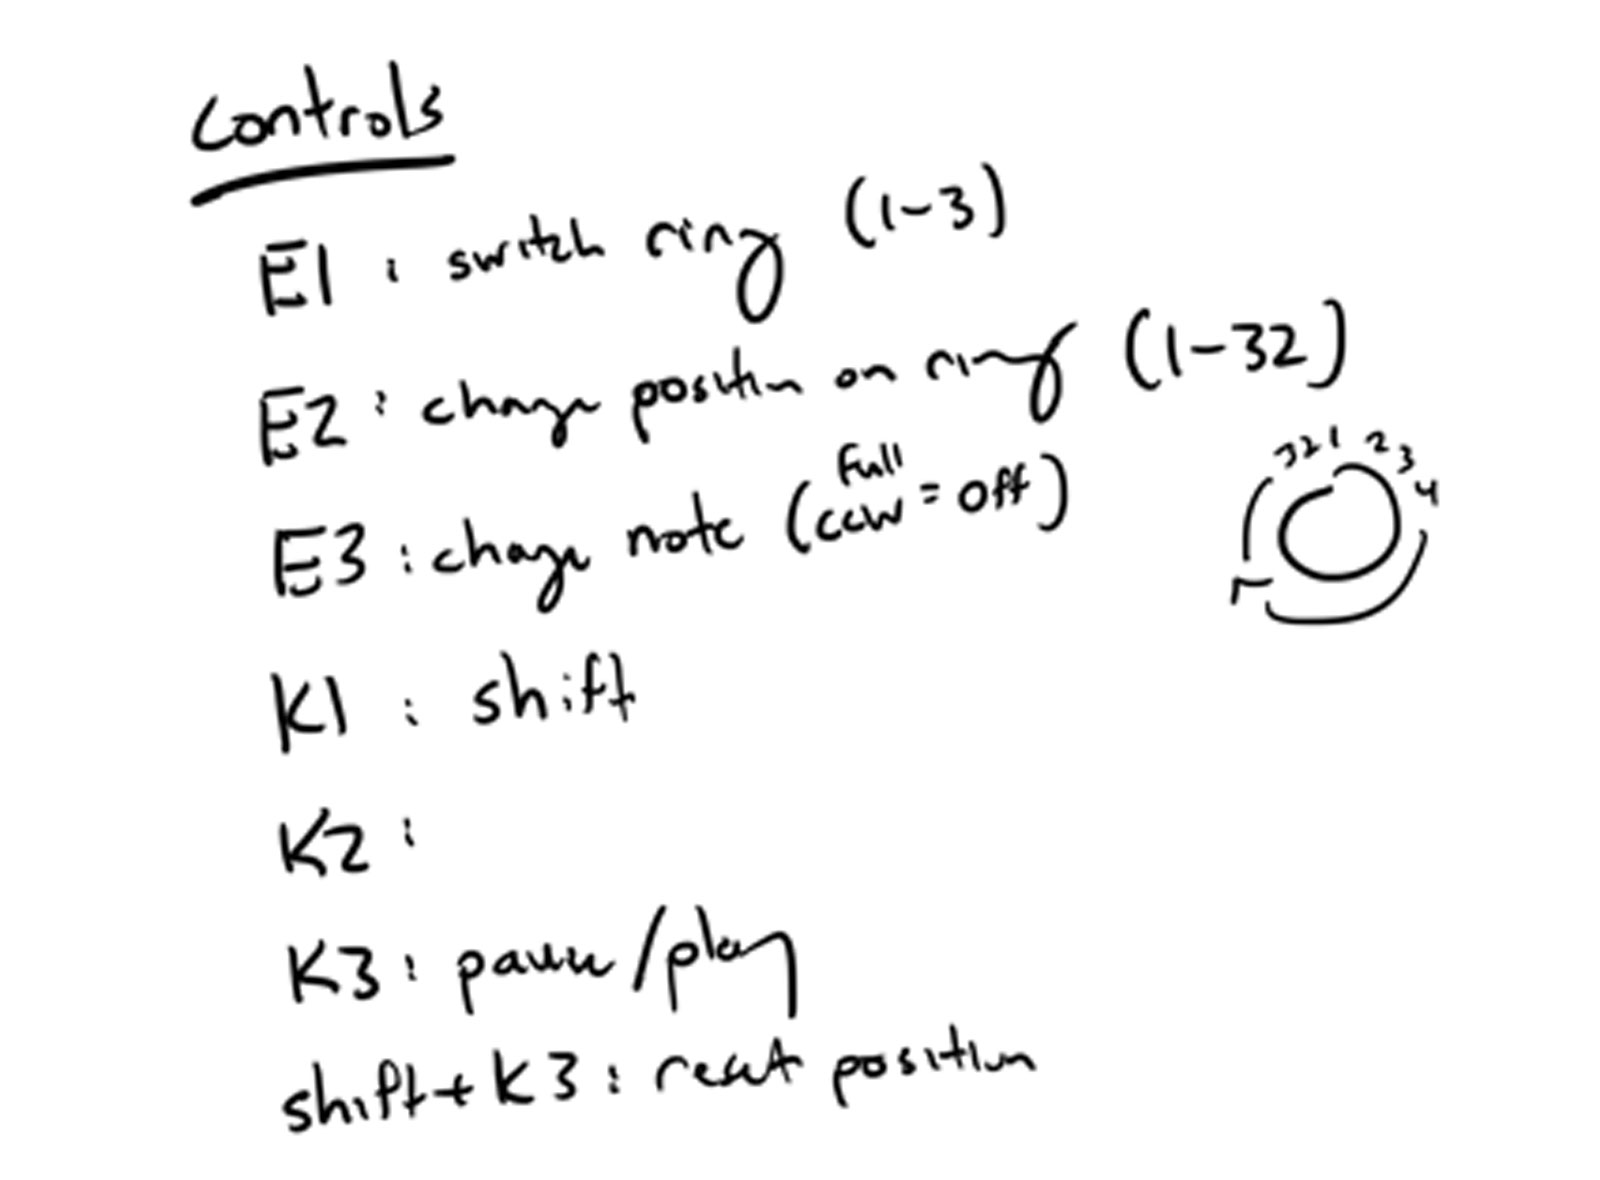 controls
E1 : switch ring (1-3)
E2 : change position on ring (1-32)
E3 : change note (full ccw = off)
32 1 2 3 4
K1 : shift
K2 :
K3 : pause/play
shift + K3 : reset position